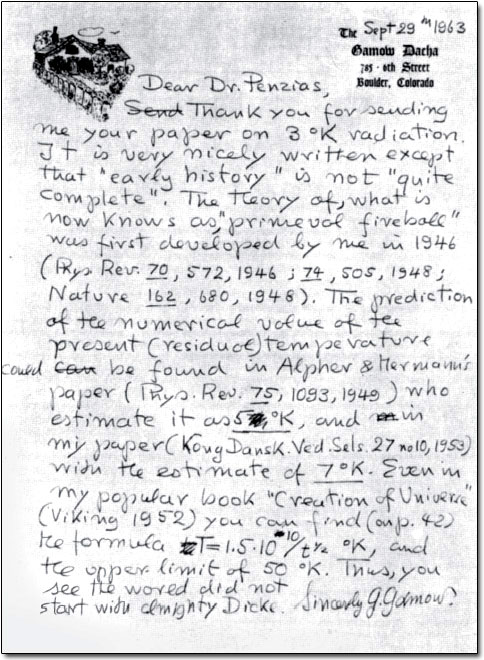 The Sept 29th 1963
Gamow Dacha
785 - 6th Street
Boulder, Colorado
Dear Dr. Penzias,
Send Thank you for sending
me your paper on 3°K radiation.
It is very nicely written except
that "early history" is not "quite
complete". The theory of, what is
now knows as, "primeval fireball"
was first developed by me in 1946
(Phys. Rev. 70, 572, 1946; 74, 505, 1948;
Nature 162, 680, 1948). The prediction
of the numerical value of the
present (residual) temperature
could can be found in Alpher & Hermann's
paper (Phys. Rev. 75, 1093, 1949) who
estimate it as 5 °K, and in
my paper (Kong Dansk. Ved. Sels. 27 no 10, 1953)
with the estimate of 7 °K. Even in
my popular book "Creation of Universe"
(Viking 1952) you can find (on p. 42)
the formula T=1.5·10^10/t^1/2 °K, and
the upper limit of 50 °K. Thus, you
see the world did not
start with almighty Dicke. Sincerly G. Gamow